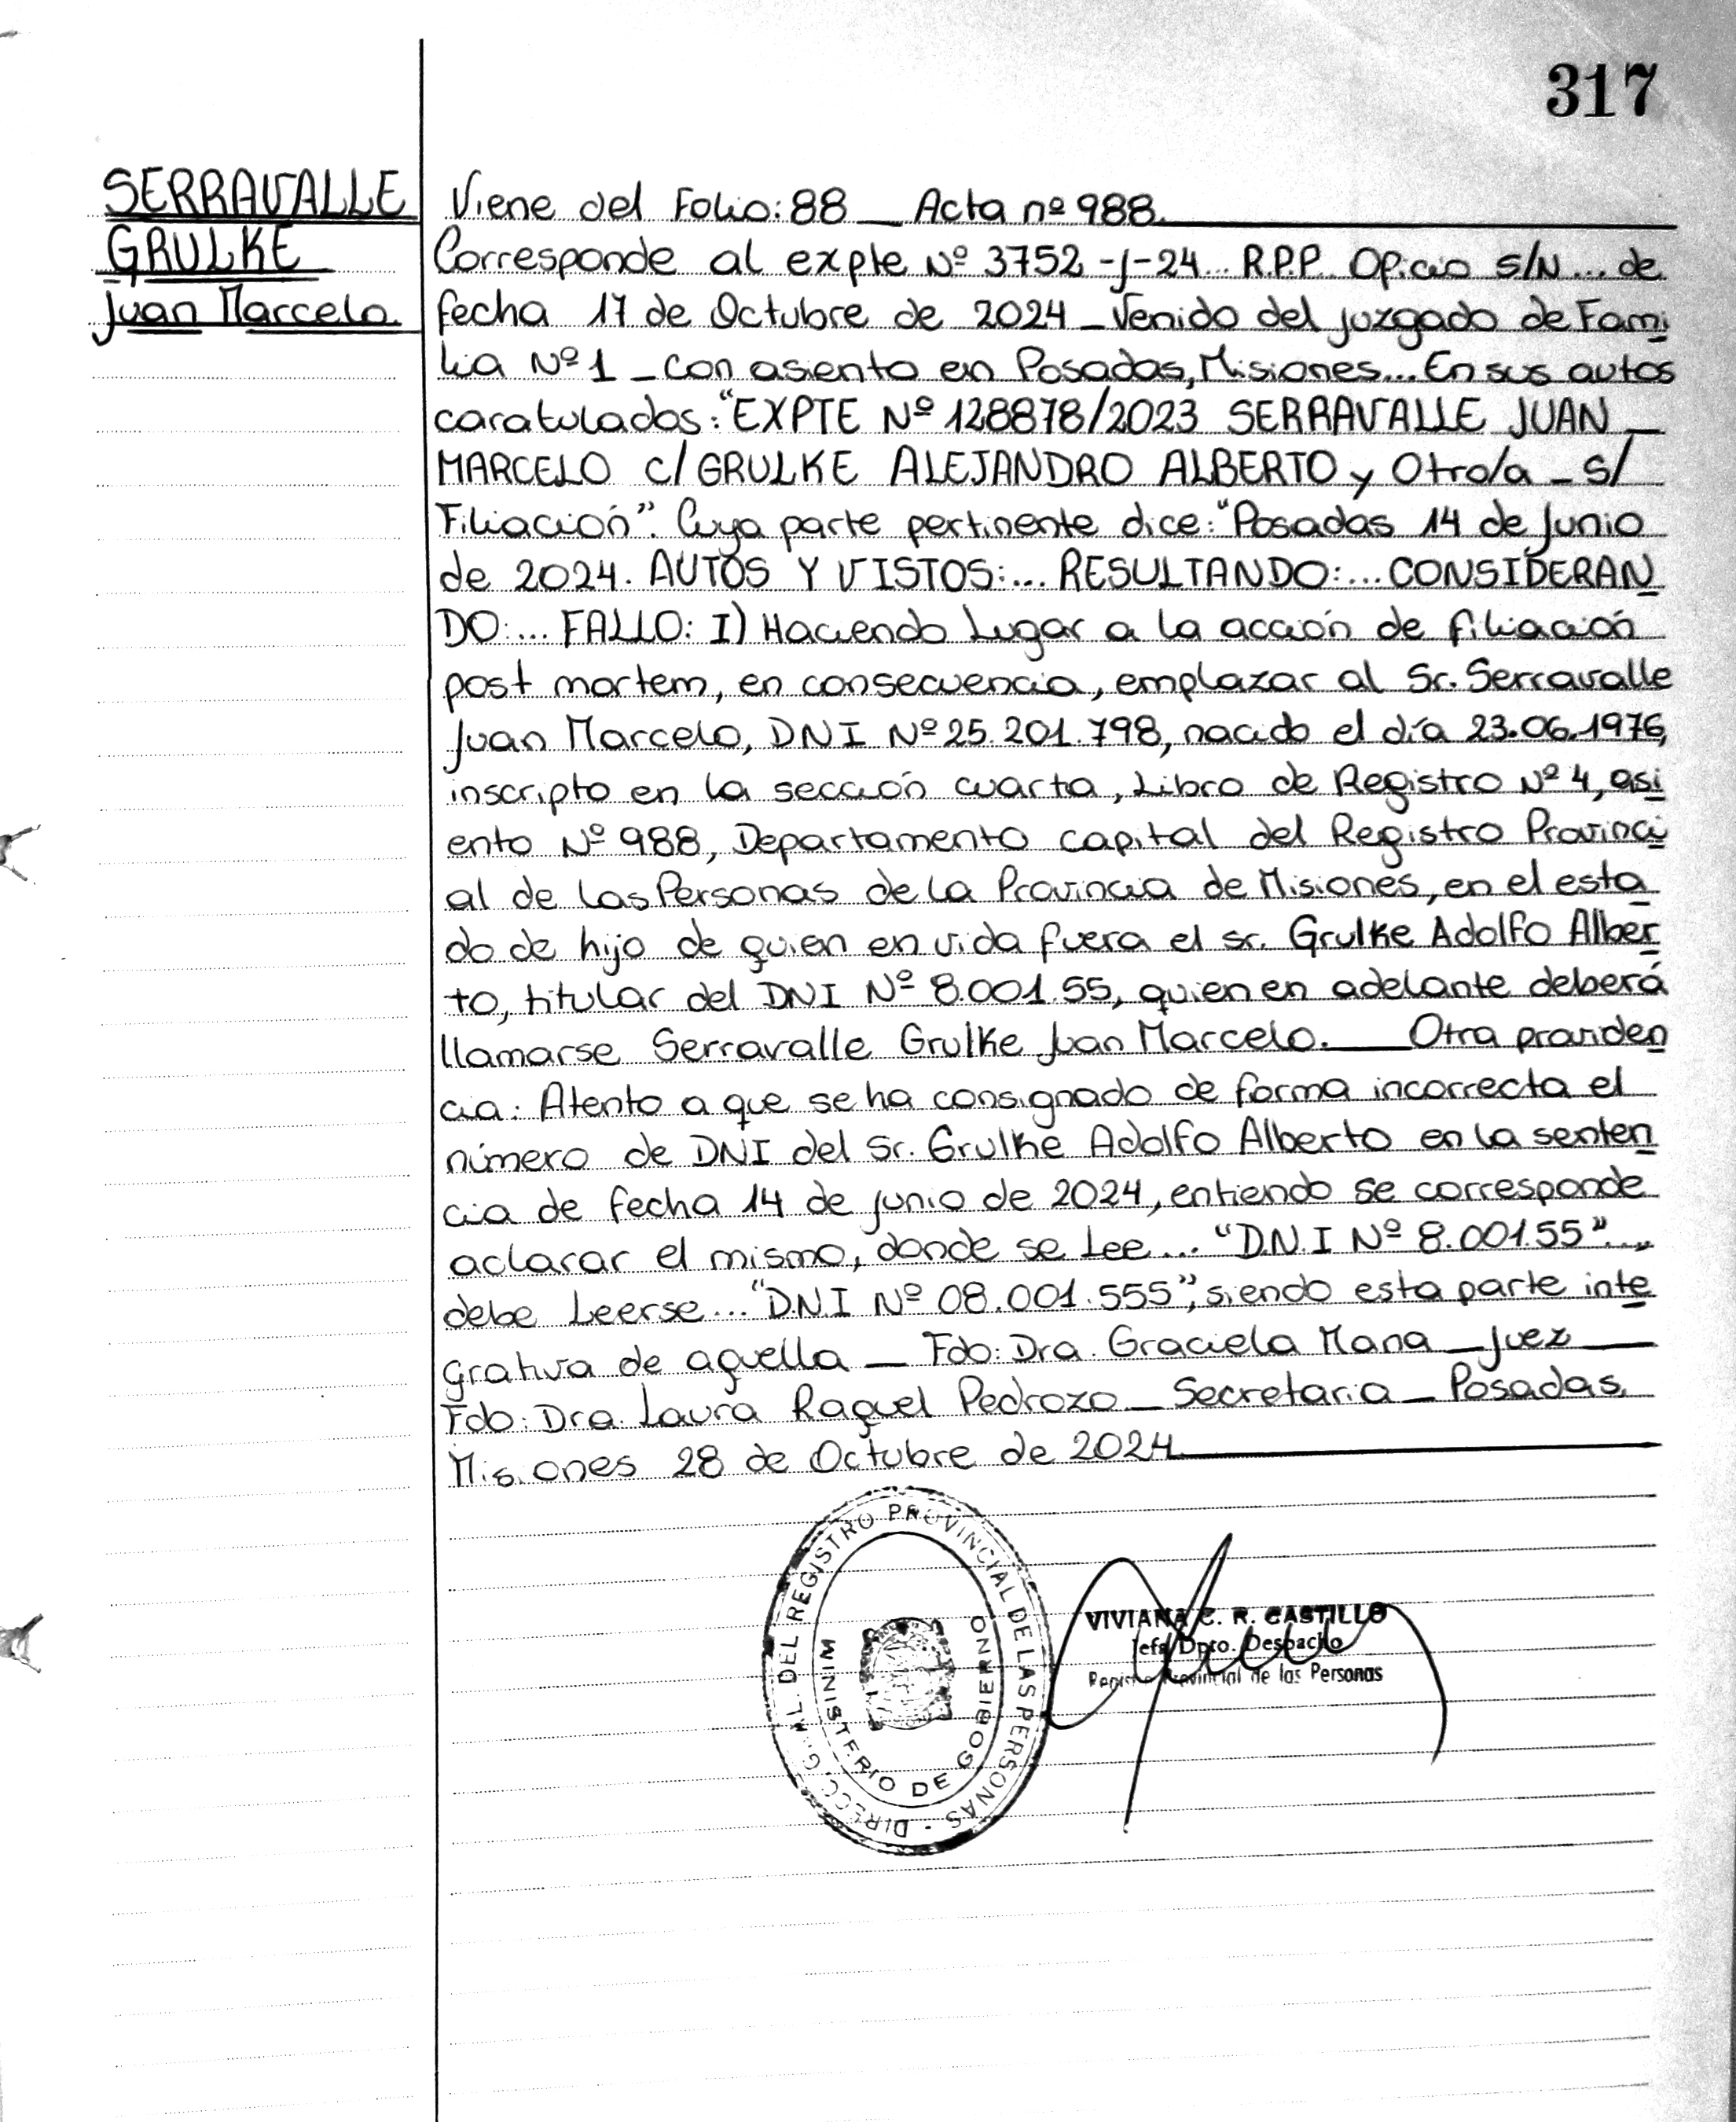 317
SERRAVALLE
GRULKE
Juan Marcelo.
Viene del Folio: 88 _ Acta nº 988.
Corresponde al expte Nº 3752 -J-24... R.P.P. Oficio S/N... de
fecha 17 de Octubre de 2024 _ Venido del juzgado de Fami
lia Nº 1 _ con asiento en Posadas, Misiones... En sus autos
caratulados: "EXPTE Nº 128878/2023 SERRAVALLE JUAN _
MARCELO c/ GRULKE ALEJANDRO ALBERTO y Otro/a _ S/
Filiación". Cuya parte pertinente dice: "Posadas 14 de Junio
de 2024. AUTOS Y VISTOS:... RESULTANDO:... CONSIDERAN
DO:... FALLO: I) Haciendo Lugar a la acción de filiación
post mortem, en consecuencia, emplazar al Sr. Serravalle
Juan Marcelo, DNI Nº 25.201.798, nacido el día 23.06.1976,
inscripto en la sección cuarta, Libro de Registro Nº 4, asi
ento Nº 988, Departamento capital del Registro Provinci
al de las Personas de la Provincia de Misiones, en el esta
do de hijo de quien en vida fuera el sr. Grulke Adolfo Alber
to, titular del DNI Nº 8.001.55, quien en adelante deberá
llamarse Serravalle Grulke Juan Marcelo. __ Otra providen
cia: Atento a que se ha consignado de forma incorrecta el
número de DNI del Sr. Grulke Adolfo Alberto en la senten
cia de fecha 14 de junio de 2024, entiendo se corresponde
aclarar el mismo, donde se Lee... "D.N.I Nº 8.001.55"...,
debe Leerse... "D.N.I Nº 08.001.555", siendo esta parte inte
grativa de aquella _ Fdo: Dra. Graciela Mana _ Juez __
Fdo: Dra. Laura Raquel Pedrozo _ Secretaria _ Posadas,
Misiones 28 de Octubre de 2024.
DIRECC. GRAL. DEL REGISTRO PROVINCIAL DE LAS PERSONAS -
MINISTERIO DE GOBIERNO
VIVIANA C. R. CASTILLO
Jefa Dpto. Despacho
Registro Provincial de las Personas